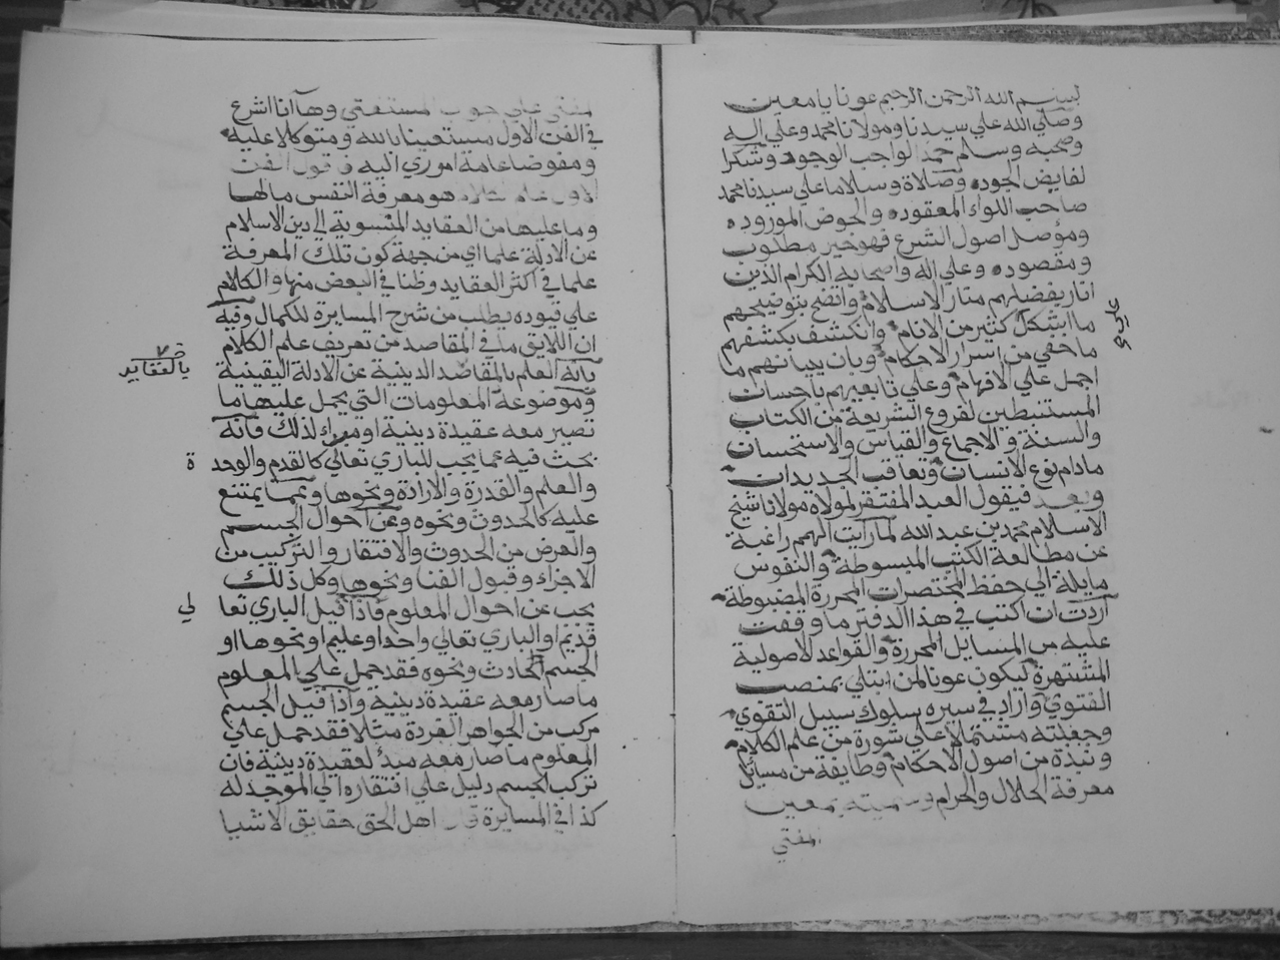 بسم الله الرحمن الرحيم عونا يا معين
وصلي الله علي سيدنا ومولانا محمد وعلي اله
وصحبه وسلم حمدا لواجب الوجود وشكرا
لفايض الجوده وصلاة وسلاما علي سيدنا محمد
صاحب اللواء المعقوده والحوض الموروده
ومؤصل اصول الشرع فهو خير مطلوب
ومقصوده وعلي اله واصحابه الكرام الذين
انار بفضلهم منار الاسلام واتضح بتوضيحهم
ما اشكل كثير من الانام وانكشف بكشفهم
علي
ما خفي من اسرار الاحكام وبان ببيانهم ما
اجمل علي الافهام وعلي تابعيهم باحسان
المستنبطين لفروع الشريعة من الكتاب
والسنة والاجماع والقياس والاستحسان
مادام نوع الانسان وتعاقب الجديدان
وبعد فيقول العبد المفتقر لمولاه مولانا شيخ
الاسلام محمد بن عبد الله لما رايت الهمم راغبة
عن مطالعة الكتب المبسوطة والنفوس
مايلة الي حفظ المختصرات المحررة المضبوطة
اردت ان اكتب في هذا الدفتر ما وقفت
عليه من المسايل المحررة والقواعد الاصولية
المشتهرة ليكون عونا لمن ابتلي بمنصب
الفتوي واراد في سيره سلوك سبيل التقوي
وجعلته مشتملا علي شورة من علم الكلام
ونبذة من اصول الاحكام وطايفة من مسايل
معرفة الحلال والحرام وسميته بمعين
المفتي
المفتي علي جواب المستفتي وها انا اشرع
في الفن الاول مستعينا بالله ومتوكلا عليه
ومفوضا عامة اموري اليه فاقول الفن
الاول علم الكلام هو معرفة النفس مالها
وما عليها من العقايد المنسوبة الي دين الاسلام
عن الادلة علما اي من جهة كون تلك المعرفة
علما في اكثر العقايد وظنا في البعض منها والكلام
علي قيوده يطلب من شرح المسايرة للكمال وفيه
ان اللايق ما في المقاصد من تعريف علم الكلام
بانه العلم بالمقاصد الدينية عن الادلة اليقينية
بالعقايد
وموضوعه المعلومات التي يحمل عليها ما
تصير معه عقيدة دينية او مبدا لذلك فانه
بحث فيه عما يجب للباري تعالي كالقدم والوحدة
والعلم والقدرة والارادة ونحوها وعما يمتنع
عليه كالحدوث ونحوه وعن احوال الجسم
والعرض من الحدوث والافتقار والتركيب من
الاجزاء وقبول الفنا ونحوها وكل ذلك
يجب عن احوال المعلوم فاذا قيل الباري تعالي
قديم او الباري تعالي واحد او عليم او نحوها او
الجسم الحادث ونحوه فقد حمل علي المعلوم
ما صار معه عقيدة دينية واذا قيل الجسم
مركب من الجواهر الفردة مثلا فقد حمل علي
المعلوم ما صار معه مبدئا لعقيدة دينية فان
تركب الجسم دليل علي افتقاره الي الموجد له
كذا في المسايرة قال اهل الحق حقايق الاشيا